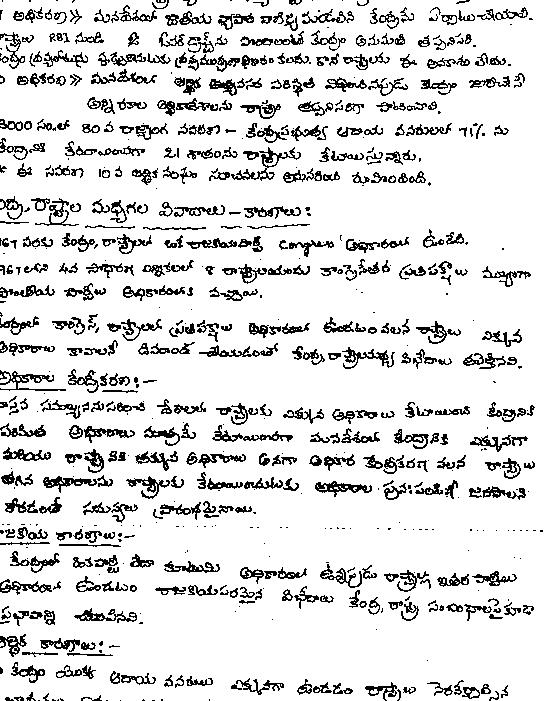 అధికరణ) » మనదేశంలో జాతీయ స్థాయిలో కేంద్రమే ఏర్పాటుచేయాలి.
RBI నుండి ఓ ఓవర్ డ్రాఫ్ట్‌ను పొందాలంటే కేంద్రం అనుమతి తప్పనిసరి.
కలదు. కానీ రాష్ట్రాలకు ఈ అవకాశం లేదు.
అధికరణ) » మనదేశంలో ఆర్థిక అత్యవసర పరిస్థితి విధించినపుడు కేంద్రం జారీచేసే
అన్ని రకాల ఆర్థికాదేశాలను రాష్ట్రం తప్పనిసరిగా పాటించాలి.
2000 సం.లో 80 వ రాజ్యాంగ సవరణ - కేంద్రప్రభుత్వ ఆదాయ వనరులలో 71% ను
కేంద్రానికి కేటాయించగా 21 శాతంను రాష్ట్రాలకు కేటాయిస్తున్నారు.
* ఈ సవరణ 10 వ ఆర్థిక సంఘం సూచనలను అనుసరించి రూపొందింది.
కేంద్ర, రాష్ట్రాల మధ్యగల వివాదాలు - కారణాలు :
1967 వరకు కేంద్రం, రాష్ట్రాలలో ఒకే రాజకీయపార్టీ Congress అధికారంలో ఉండేది.
1967 లోని 4వ సాధారణ ఎన్నికలలో 8 రాష్ట్రాలయందు కాంగ్రెసేతర ప్రతిపక్షాలు ముఖ్యంగా
ప్రాంతీయ పార్టీలు అధికారంలోకి వచ్చాయి.
కేంద్రంలో కాంగ్రెస్, రాష్ట్రాలలో ప్రతిపక్షాలు అధికారంలో ఉండటం వలన రాష్ట్రాలు ఎక్కువ
అధికారాలు కావాలని డిమాండ్ చేయడంతో కేంద్ర, రాష్ట్రాలమధ్య విభేదాలు తలెత్తినవి.
అధికారాల కేంద్రీకరణ :-
వాస్తవ సమాఖ్యననుసరించి దేశాలలో రాష్ట్రాలకు ఎక్కువ అధికారాలు కేటాయించి కేంద్రానికి
పరిమిత అధికారాలు మాత్రమే కేటాయించగా మనదేశంలో కేంద్రానికి ఎక్కువగా
మరియు రాష్ట్రానికి తక్కువ అధికారాలు అనగా అధికార కేంద్రీకరణ వలన రాష్ట్రాలు
తగిన అధికారాలను రాష్ట్రాలకు కేటాయించుటకు అధికారాల పునఃపంపిణీ జరపాలని
కోరడంతో సమస్యలు ప్రారంభమైనాయి.
రాజకీయ కారణాలు :-
కేంద్రంలో ఒకపార్టీ లేదా కూటమి అధికారంలో ఉన్నప్పుడు రాష్ట్రాల్లో ఇతర పార్టీలు
అధికారంలో ఉండటం రాజకీయపరమైన విభేదాలు కేంద్ర, రాష్ట్ర సంబంధాలపై కూడా
ప్రభావాన్ని చూపినవి.
ఆర్థిక కారణాలు :-
కేంద్రం యొక్క ఆదాయ వనరులు ఎక్కువగా ఉండడం రాష్ట్రాలు నెరవేర్చాల్సిన